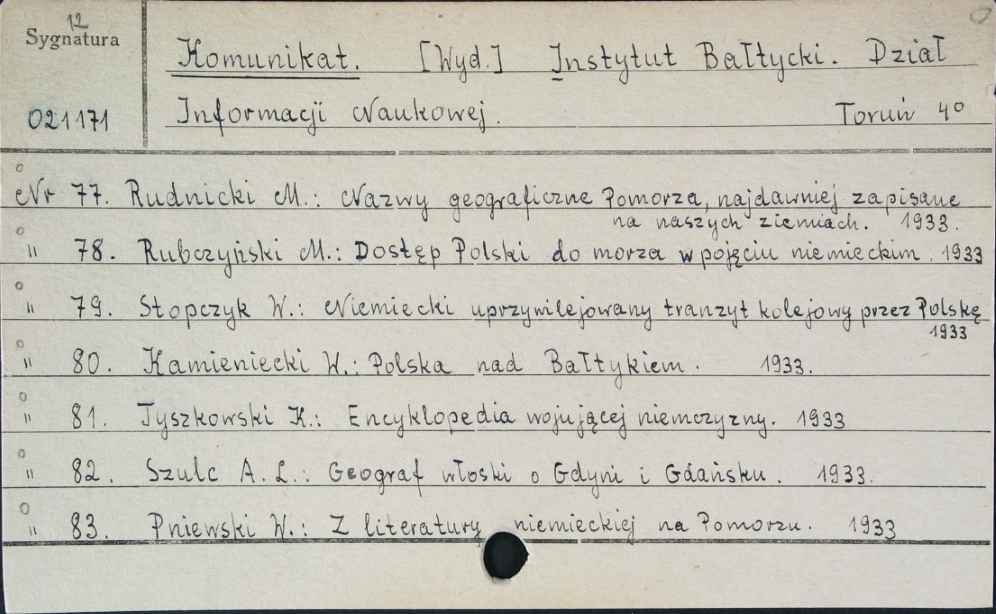 12
Sygnatura
Komunikat. [Wyd.] Instytut Bałtycki. Dział
021171 Informacji Naukowej. Toruń 4°
Nr 77. Rudnicki M.: Nazwy geograficzne Pomorza, najdawniej zapisane
na naszych ziemiach. 1933.
" 78. Rubczyński M.: Dostęp Polski do morza w pojęciu niemieckim. 1933
" 79. Stopczyk W.: Niemiecki uprzywilejowany tranzyt kolejowy przez Polskę
1933
" 80. Kamieniecki W.: Polska nad Bałtykiem. 1933.
" 81. Tyszkowski K.: Encyklopedia wojującej niemczyzny. 1933
" 82. Szulc A. L.: Geograf włoski o Gdyni i Gdańsku. 1933.
" 83. Pniewski W.: Z literatury niemieckiej na Pomorzu. 1933